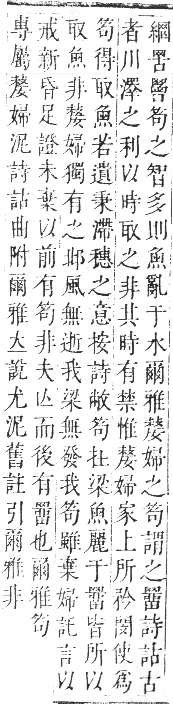 網罟罾笱之智多則魚亂于水爾雅嫠婦之笱謂之罶詩詁古
者川澤之利以時取之非其時有禁惟嫠婦家上所矜閔使爲
笱得取魚若遺秉滯穗之意按詩敝笱在梁魚麗于罶皆所以
取魚非嫠婦獨有之邶風無逝我梁無發我笱雖棄婦託言以
戒新昏足證未棄以前有笱非夫亾而後有罶也爾雅笱
專屬嫠婦泥詩詁曲附爾雅之說尤泥舊註引爾雅非